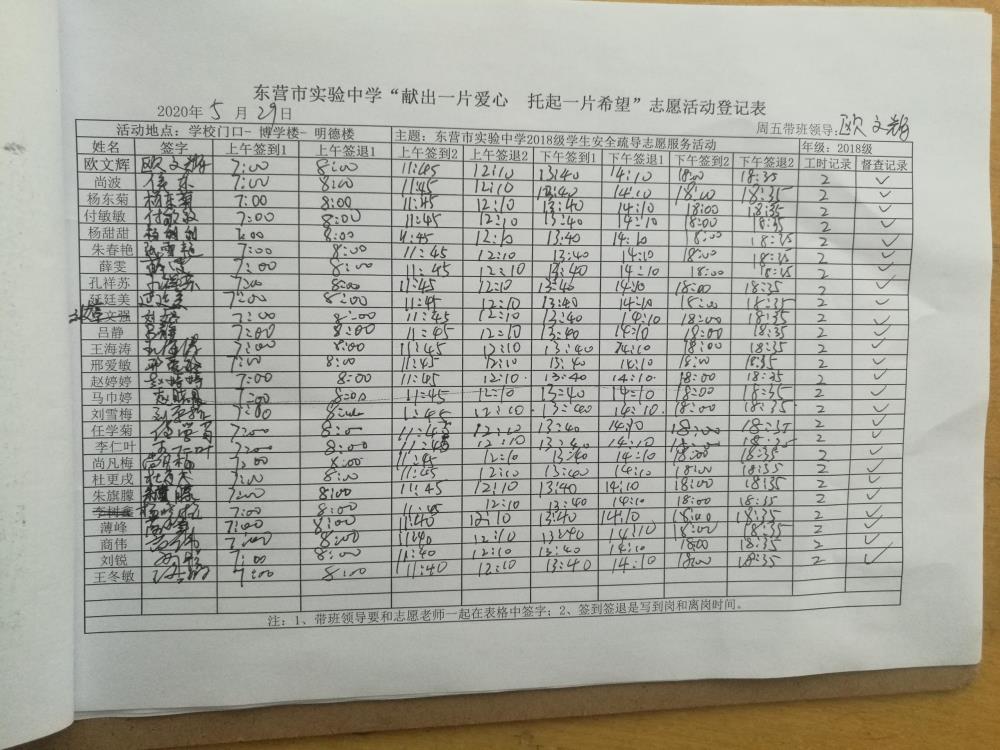 东营市实验中学“献出一片爱心 托起一片希望”志愿活动登记表
2020年5月29日 周五带班领导:欧文辉
活动地点:学校门口-博学楼-明德楼 主题:东营市实验中学2018级学生安全疏导志愿服务活动 年级:2018级
姓名 签字 上午签到1 上午签退1 上午签到2 上午签退2 下午签到1 下午签退1 下午签到2 下午签退2 工时记录 督查记录
欧文辉 欧文辉 7:00 8:00 11:45 12:10 13:40 14:10 18:00 18:35 2 ✓
尚波 7:00 8:00 11:45 12:10 13:40 14:10 18:00 18:35 2 ✓
杨东菊 杨东菊 7:00 8:00 11:45 12:10 13:40 14:10 18:00 18:35 2 ✓
付敏敏 付敏敏 7:00 8:00 11:45 12:10 13:40 14:10 18:00 18:35 2 ✓
杨甜甜 7:00 8:00 11:45 12:10 13:40 14:10 18:00 18:35 2 ✓
朱春艳 7:00 8:00 11:45 12:10 13:40 14:10 18:00 18:35 2 ✓
薛雯 7:00 8:00 11:45 12:10 13:40 14:10 18:00 18:35 2 ✓
孔祥苏 孔祥苏 7:00 8:00 11:45 12:10 13:40 14:10 18:00 18:35 2 ✓
延廷美 7:00 8:00 11:45 12:10 13:40 14:10 18:00 18:35 2 ✓
文强 7:00 8:00 11:45 12:10 13:40 14:10 18:00 18:35 2 ✓
吕静 吕静 7:00 8:00 11:45 12:10 13:40 14:10 18:00 18:35 2 ✓
王海涛 7:00 8:00 11:45 12:10 13:40 14:10 18:00 18:35 2 ✓
邢爱敏 7:00 8:00 11:45 12:10 13:40 14:10 18:00 18:35 2 ✓
赵婷婷 赵婷婷 7:00 8:00 11:45 12:10 13:40 14:10 18:00 18:35 2 ✓
马巾婷 7:00 8:00 11:45 12:10 13:40 14:10 18:00 18:35 2 ✓
刘雪梅 7:00 8:00 11:45 12:10 13:40 14:10 18:00 18:35 2 ✓
任学菊 任学菊 7:00 8:00 11:45 12:10 13:40 14:10 18:00 18:35 2 ✓
李仁叶 李仁叶 7:00 8:00 11:45 12:10 13:40 14:10 18:00 18:35 2 ✓
尚凡梅 7:00 8:00 11:45 12:10 13:40 14:10 18:00 18:35 2 ✓
杜更戌 7:00 8:00 11:45 12:10 13:40 14:10 18:00 18:35 2 ✓
朱旗朦 7:00 8:00 11:45 12:10 13:40 14:10 18:00 18:35 2 ✓
李树鑫 7:00 8:00 11:45 12:10 13:40 14:10 18:00 18:35 2 ✓
薄峰 7:00 8:00 11:40 12:10 13:40 14:10 18:00 18:35 2 ✓
商伟 商伟 7:00 8:00 11:40 12:10 13:40 14:10 18:00 18:35 2 ✓
刘锐 7:00 8:00 11:40 12:10 13:40 14:10 18:00 18:35 2 ✓
王冬敏 7:00 8:00 11:40 12:10 13:40 14:10 18:00 18:35 2 ✓
注:1、带班领导要和志愿老师一起在表格中签字;2、签到签退是写到岗和离岗时间。